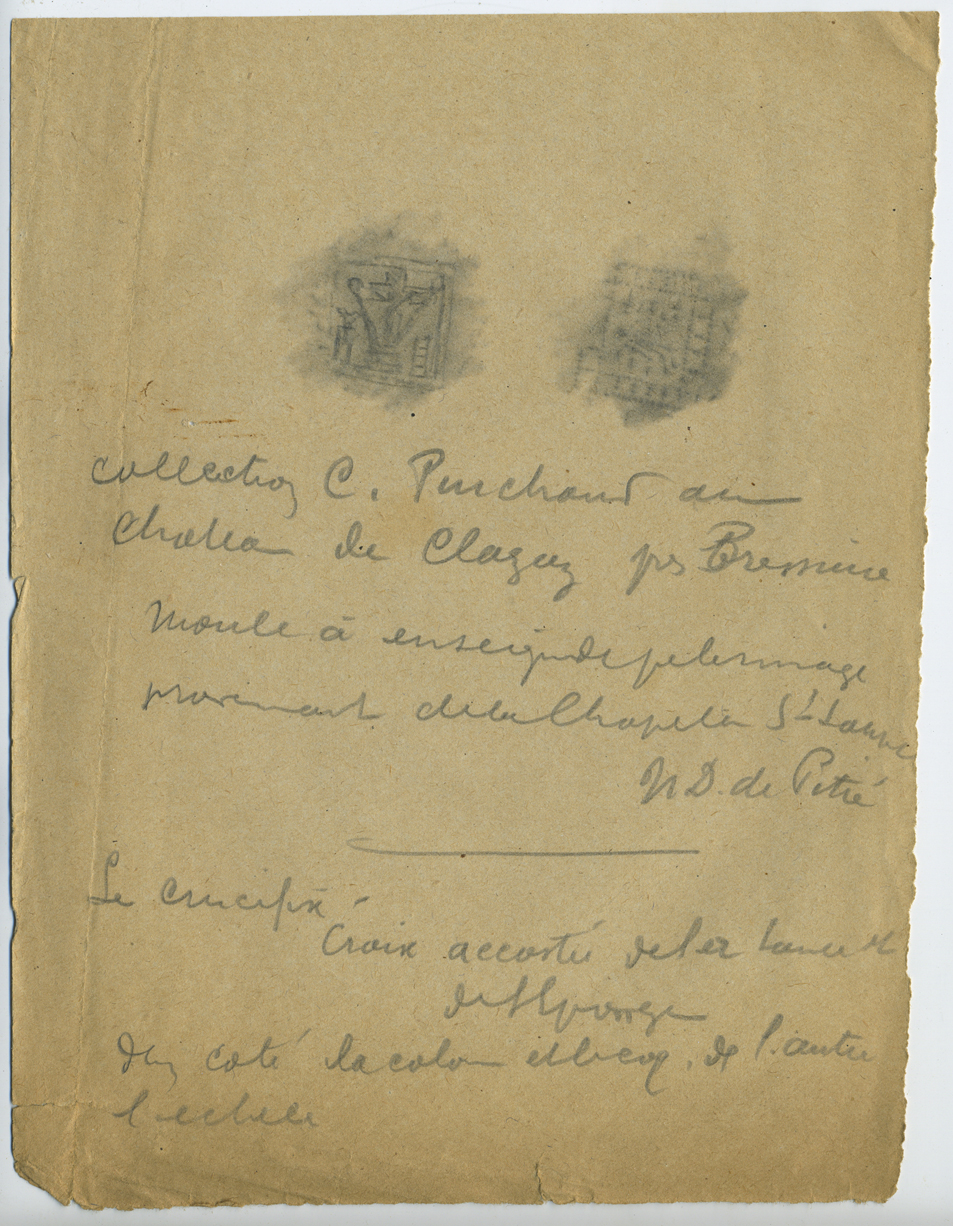 collection C. Puichaud au
Chateau de Clazay prs Bressuire
Moule à enseigne de pelerinage
provenant de la Chapelle St Laurt
N D. de Pitié
Le crucifix
Croix accostée de la lance et
de l'Eponge
d'un coté la colonne et le coq, de l'autre
l'echelle